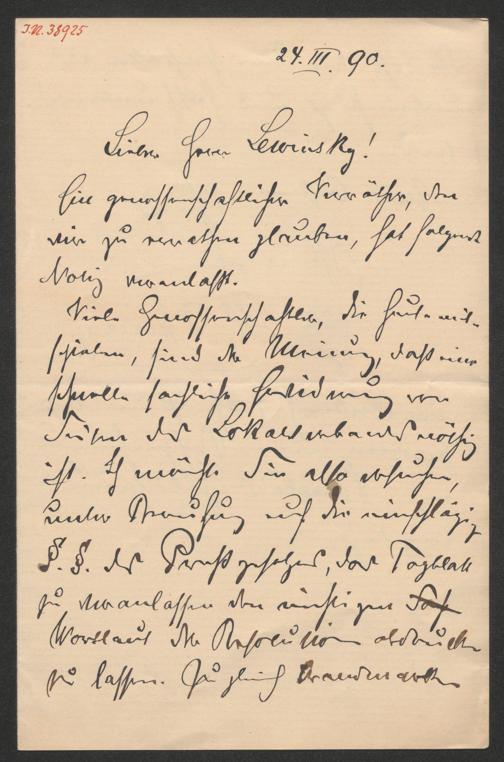 J.N. 38925
24. III. 90.
Lieber Herr Lewinsky!
Ein genossenschaftlicher Verräther, den
wir zu errathen glauben, hat folgende
Notiz veranlaßt.
Viele Genossenschaftler, die heute mit-
spielen, sind der Meinung, daß eine
schnelle sachliche Erwiderung von
Seiten des Lokalverbandes nöthig
ist. Ich möchte Sie also ersuchen,
unter Berufung auf die einschlägigen
§. §. des Preßgesetzes, das Tagblatt
zu veranlassen den richtigen
Wortlaut der Resolution abdrucken
zu lassen. Zugleich brandmarken